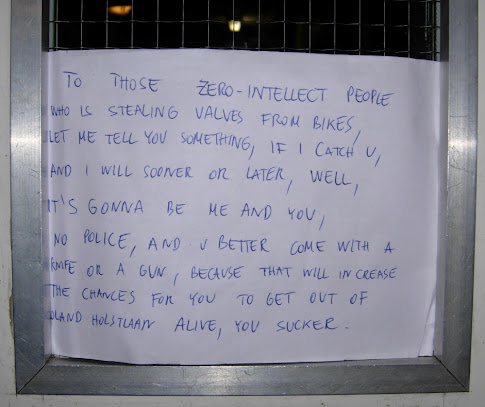 TO THOSE ZERO-INTELLECT PEOPLE
WHO IS STEALING VALVES FROM BIKES,
LET ME TELL YOU SOMETHING, IF I CATCH U,
AND I WILL SOONER OR LATER, WELL,
IT'S GONNA BE ME AND YOU,
NO POLICE, AND U BETTER COME WITH A
KNIFE OR A GUN, BECAUSE THAT WILL INCREASE
THE CHANCES FOR YOU TO GET OUT OF
OLAND HOLSTLAAN ALIVE, YOU SUCKER.